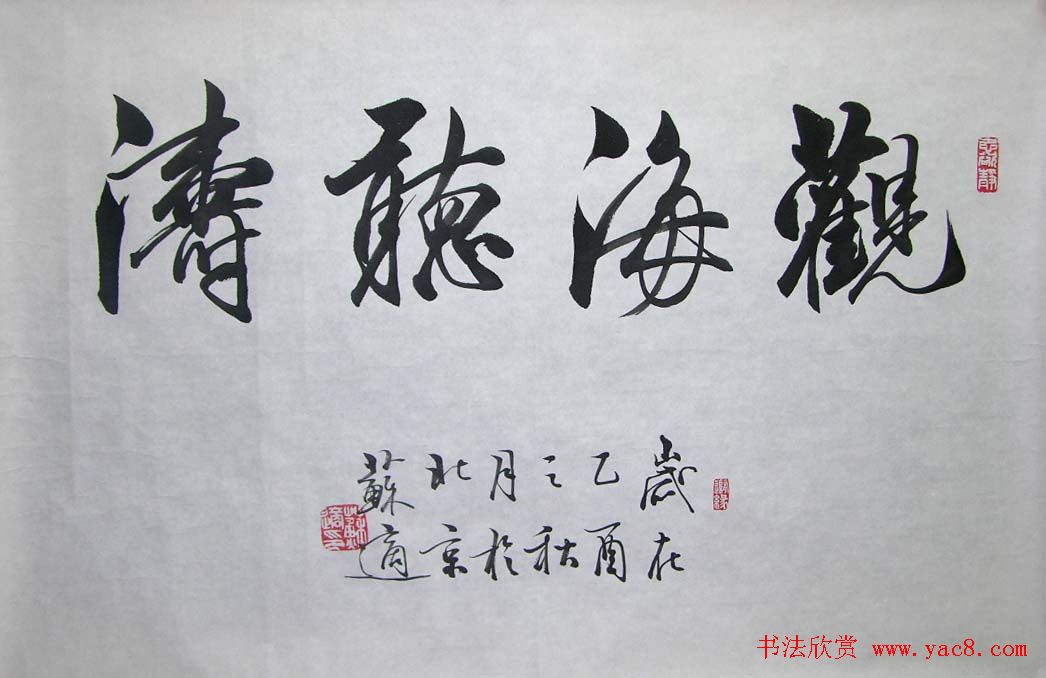 觀海聽濤
歲在
乙酉
之秋
月於
北京
蘇適
书法欣赏 www.yac8.com